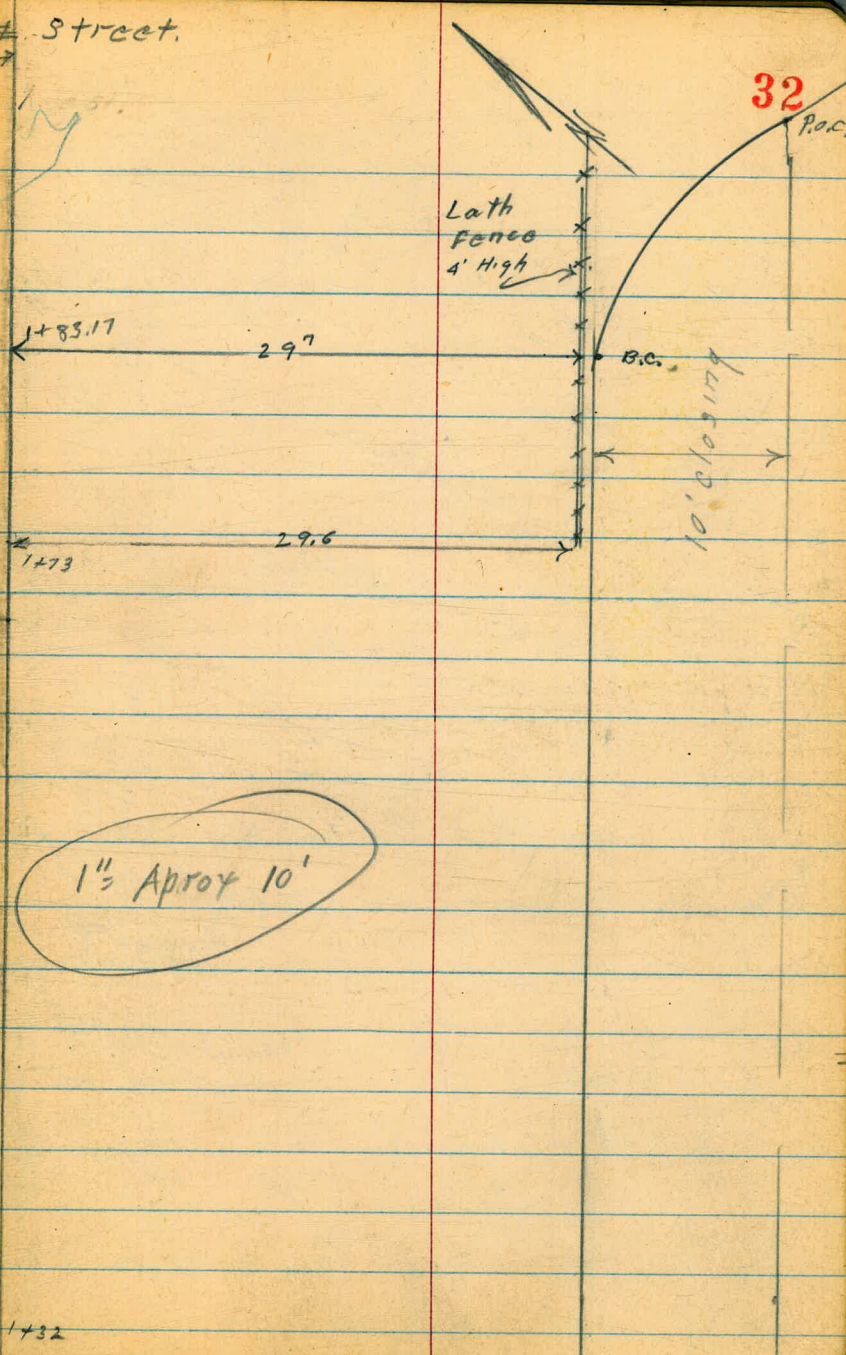 Street.
32
P.O.C.
Lath
Fence
4' High
1+83.17
29⁷
B.C.
10' Closing
29.6
1+73
1"= Aprox 10'
1+32